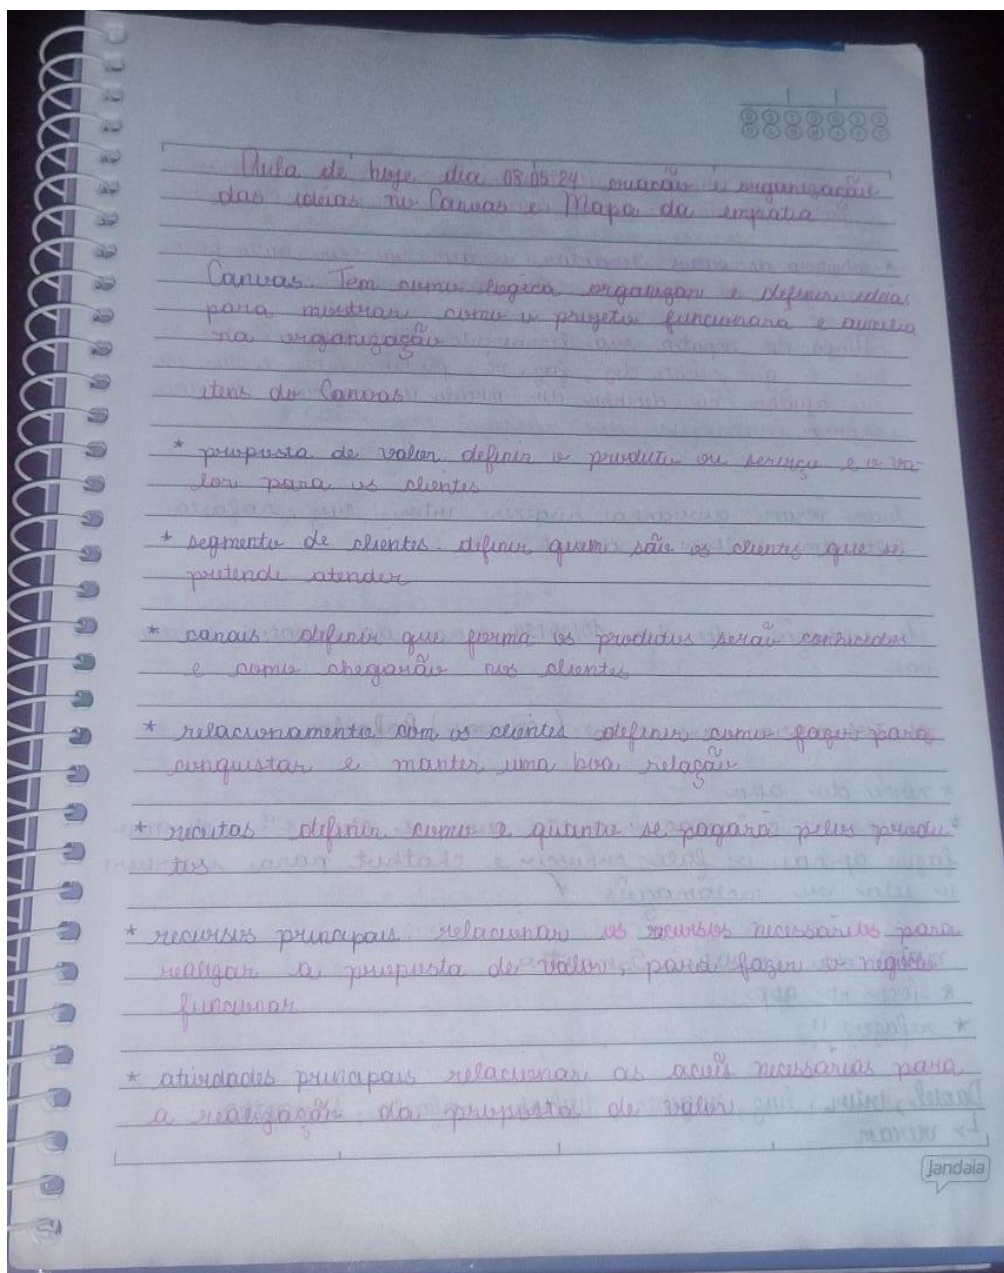 Aula de hoje dia 08.05.24 criação e organização
das idéias no Canvas e Mapa da empatia
Canvas: Tem como lógica organizar e definir ideias
para mostrar como o projeto funcionara e auxilia
na organização
itens do Canvas
* proposta de valor definir o produto ou serviço e o va-
lor para os clientes
* segmento de clientes. definir quem são os clientes que se
pretende atender
* canais: definir que forma os produtos serão conhecidos
e como chegarão aos clientes
* relacionamento com os clientes definir como fazer para
conquistar e manter uma boa relação
* receitas definir como e quanto se pagará pelos produ
tos
* recursos principais relacionar os recursos necessários para
realizar a proposta de valor, para fazer o negócio
funcionar
* atividades principais relacionar as ações necessarias para
a realização da proposta de valor
Jandaia